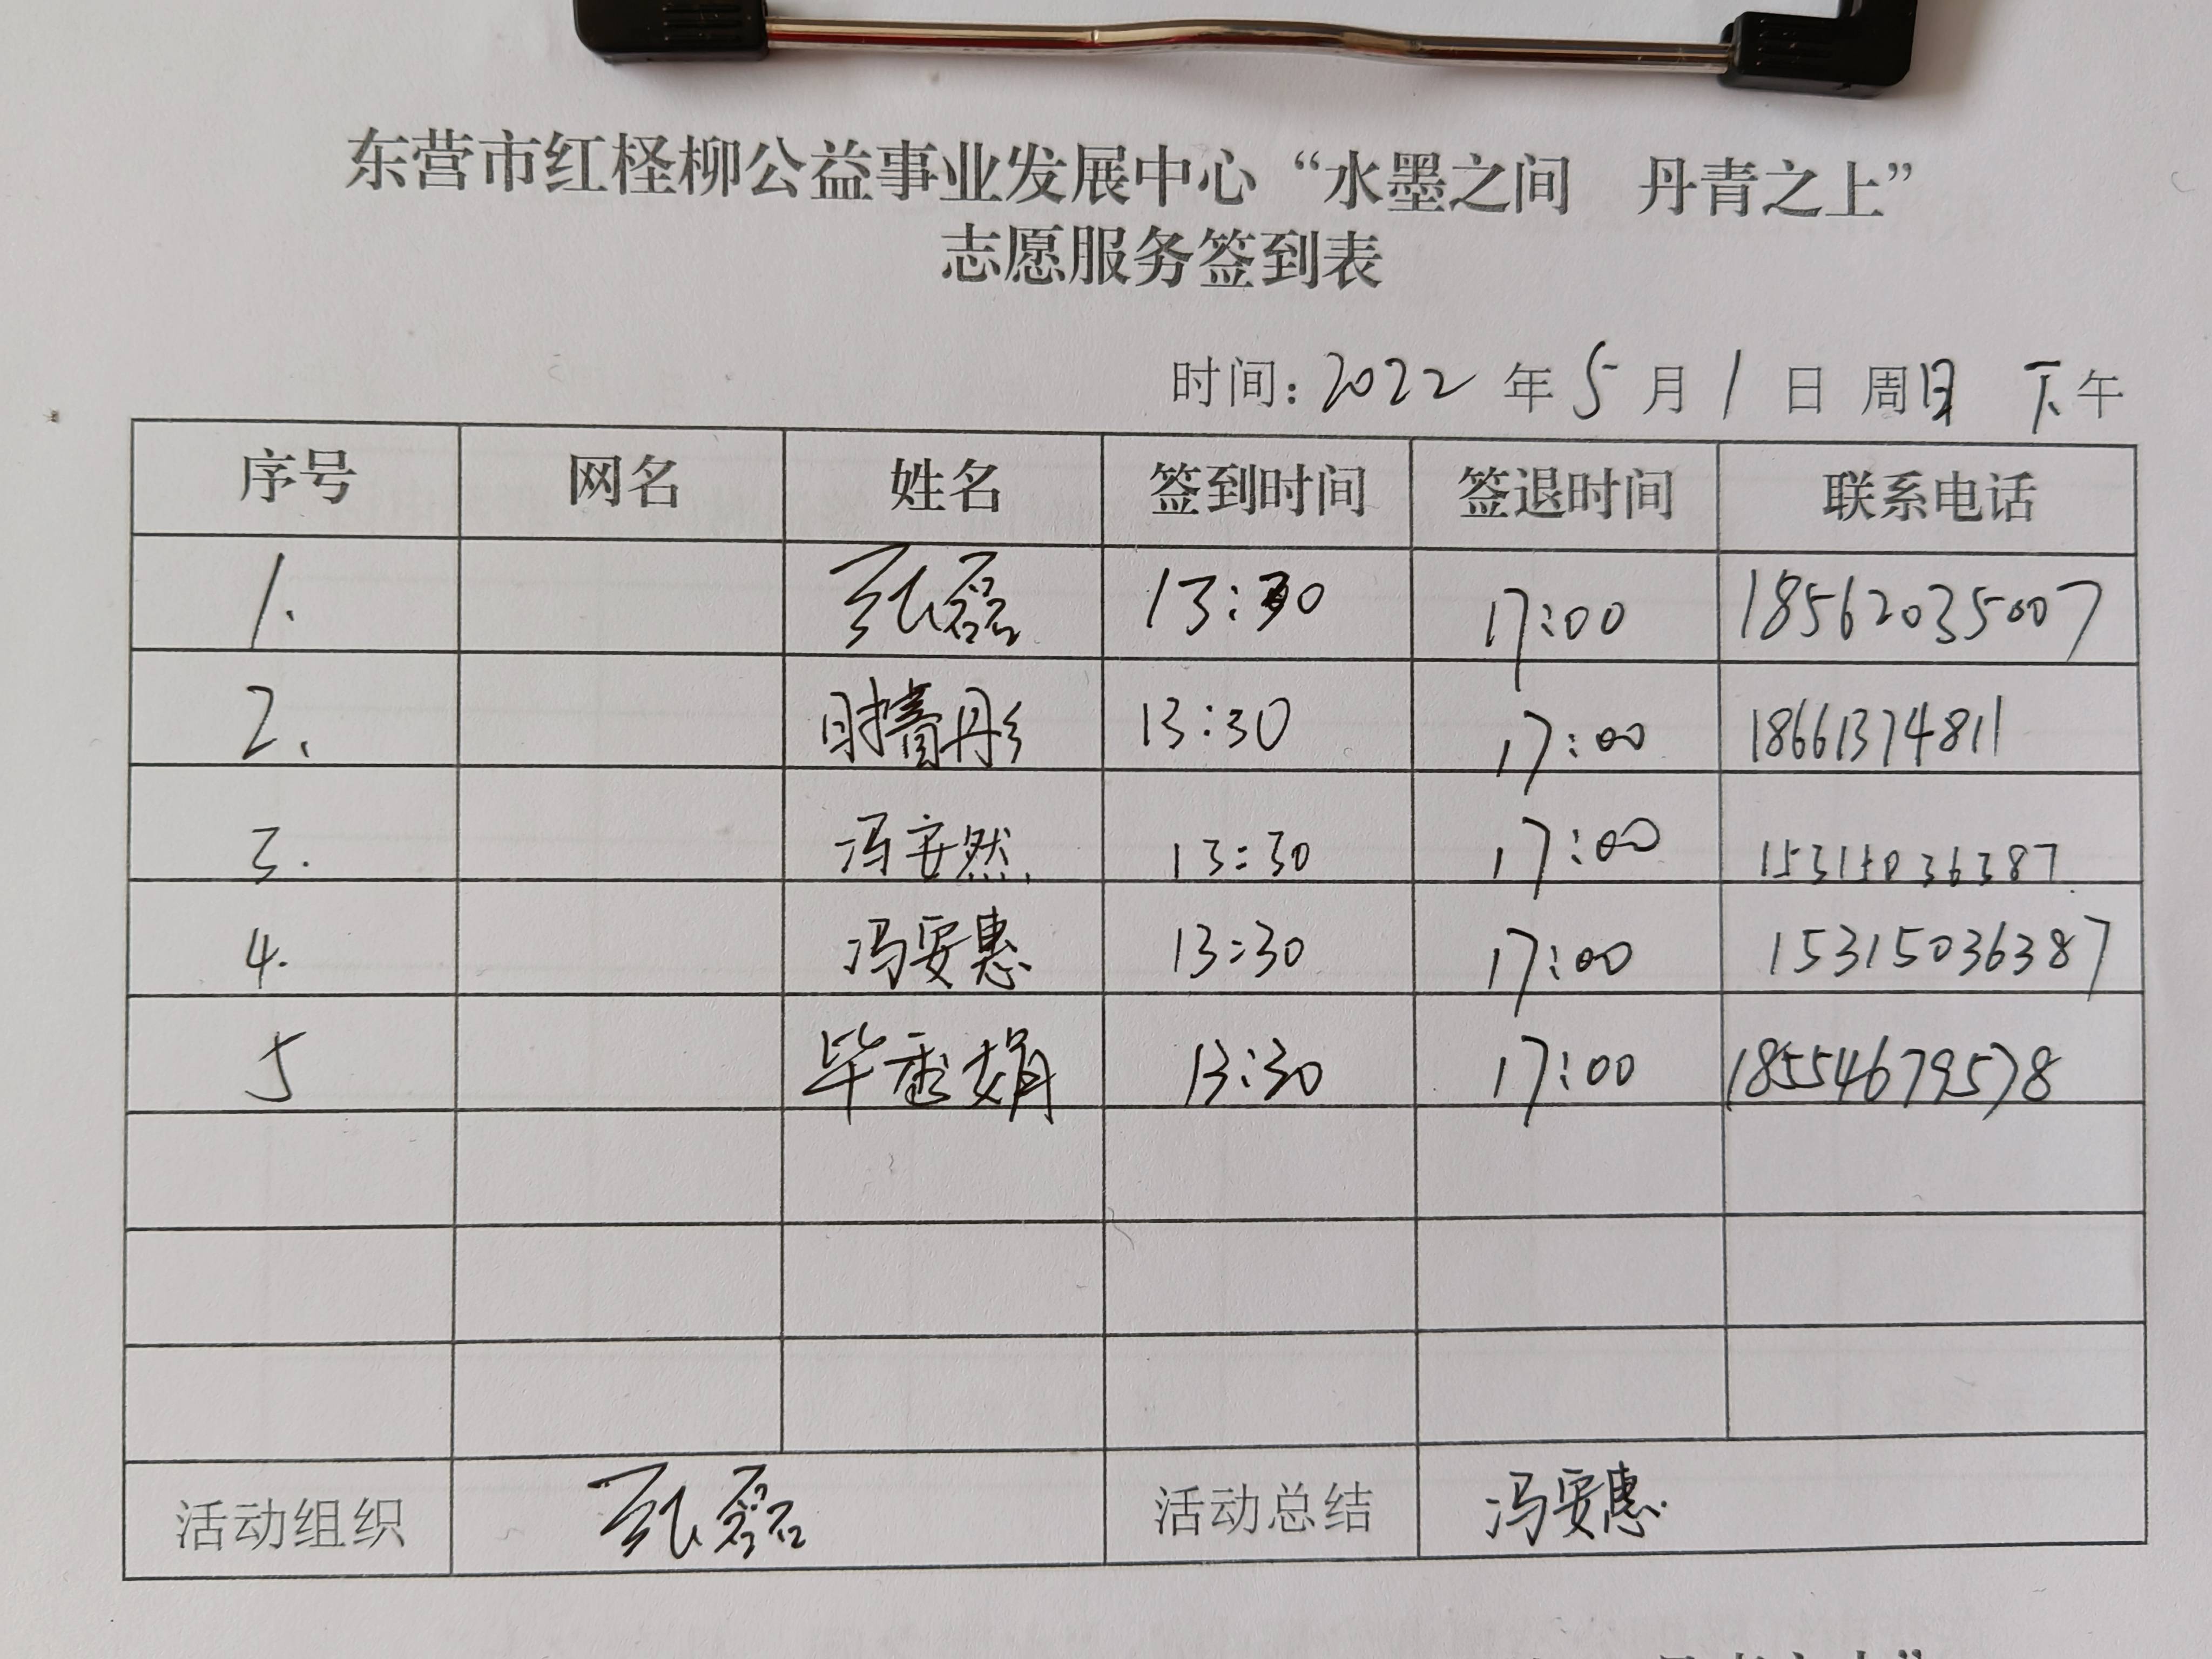 东营市红柽柳公益事业发展中心“水墨之间 丹青之上”
志愿服务签到表
时间：2022 年 5 月 1 日 周日 下午
序号 网名 姓名 签到时间 签退时间 联系电话
1. 张磊 13:30 17:00 18562035007
2. 彤 13:30 17:00 18661374811
3. 冯安然 13:30 17:00 15315036387
4. 冯安惠 13:30 17:00 15315036387
5 毕秀娟 13:30 17:00 18554679578
活动组织 张磊 活动总结 冯安惠